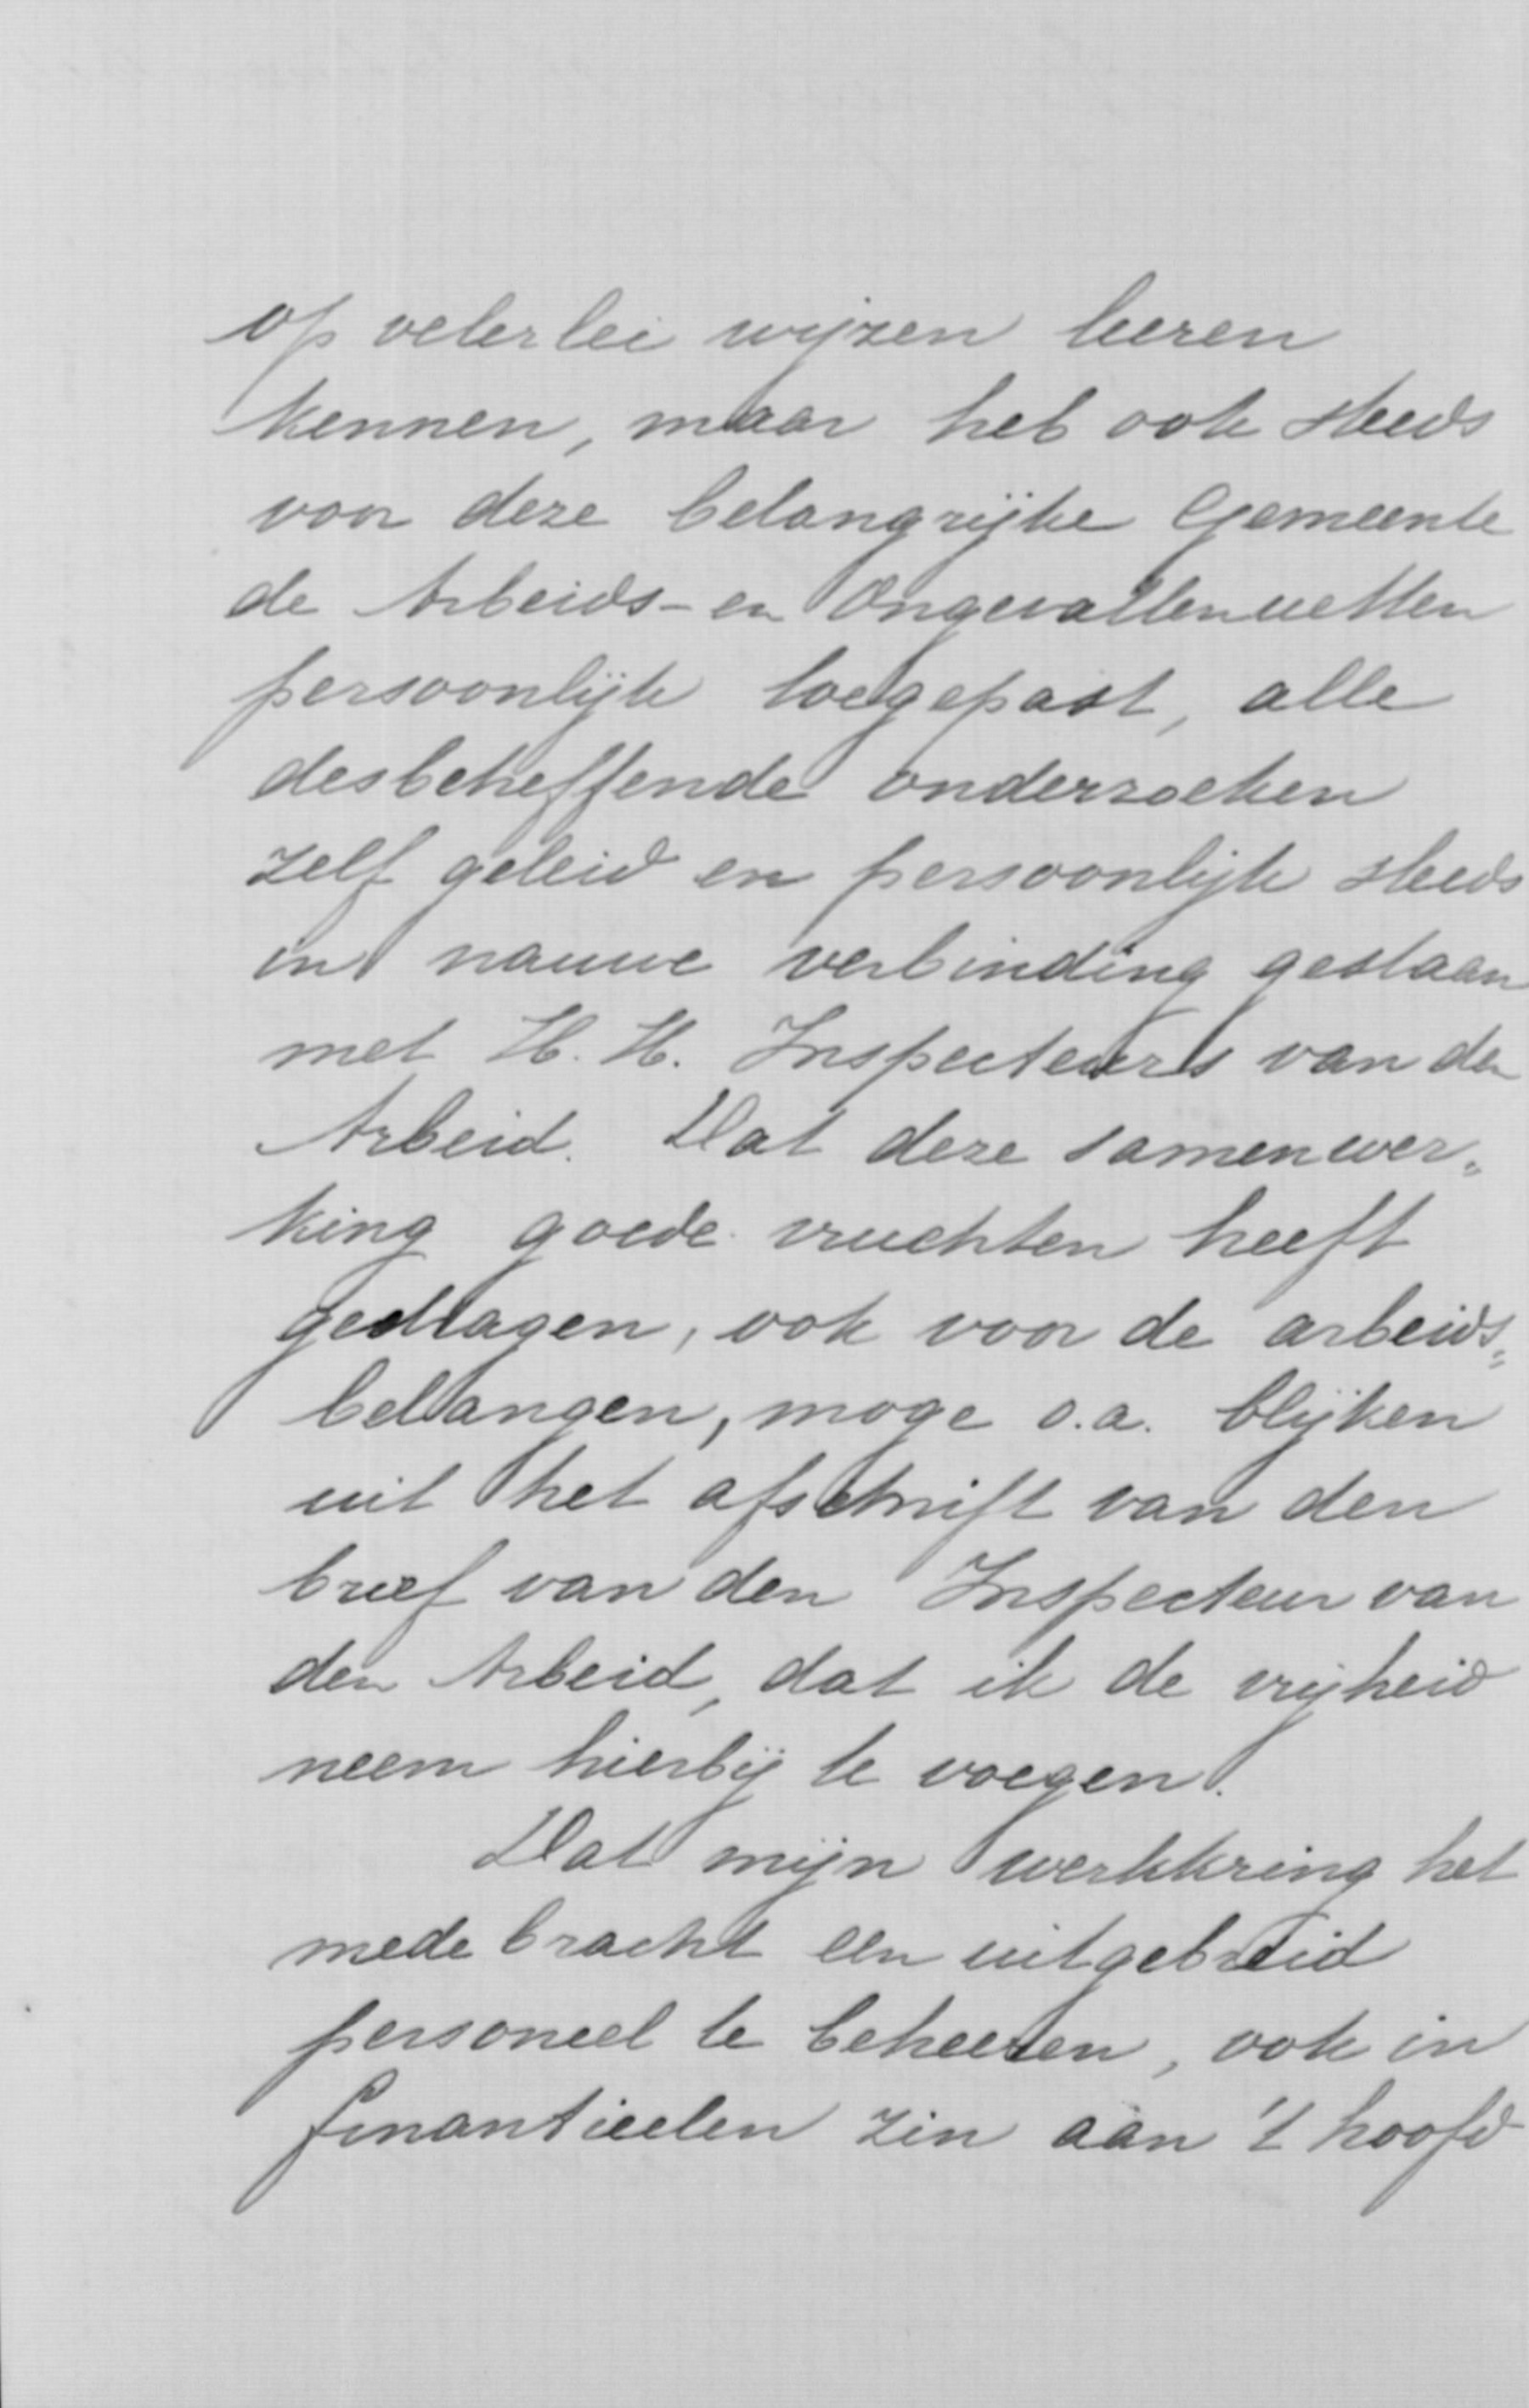 op velerlei wijzen leeren
kennen, maar heb ook steeds
voor deze belangrijke Gemeente
de Arbeids- en Ongevallenwetten
persoonlijk toegepast, alle
desbetreffende onderzoeken
zelf geleid en persoonlijk steeds
in nauwe verbinding gestaan
met H. H. Inspecteurs van den
Arbeid. Dat deze samenwer=
king goede vruchten heeft
gedragen, ook voor de arbeids=
belangen, moge o.a. blijken
uit het afschrift van den
brief van den Inspecteur van
den Arbeid, dat ik de vrijheid
neem hierbij te voegen.
Dat mijn werkkring het
mede bracht een uitgebreid
personeel te beheeren, ook in
finantieelen zin aan 't hoofd